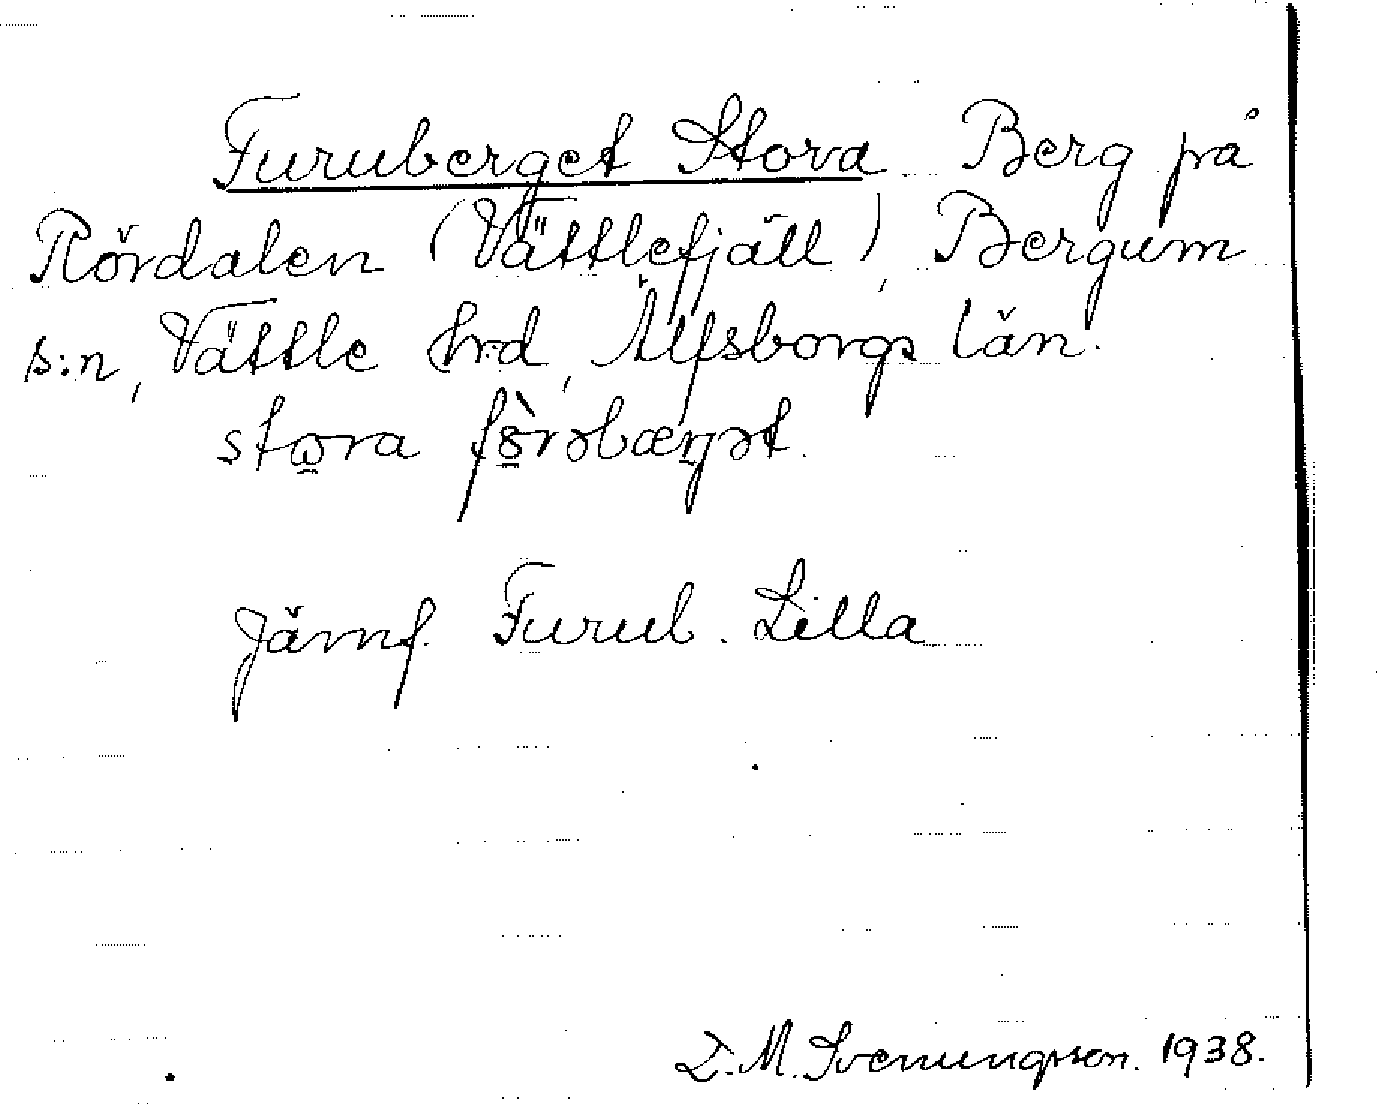 Furuberget Stora Berg på
Rördalen (Vättlefjäll), Bergum
s:n, Vättle hrd, Älfsborgs län.
stωra fòrəbæŋət.
Jämf. Furub. Lilla
I. M. Svenungsson. 1938.